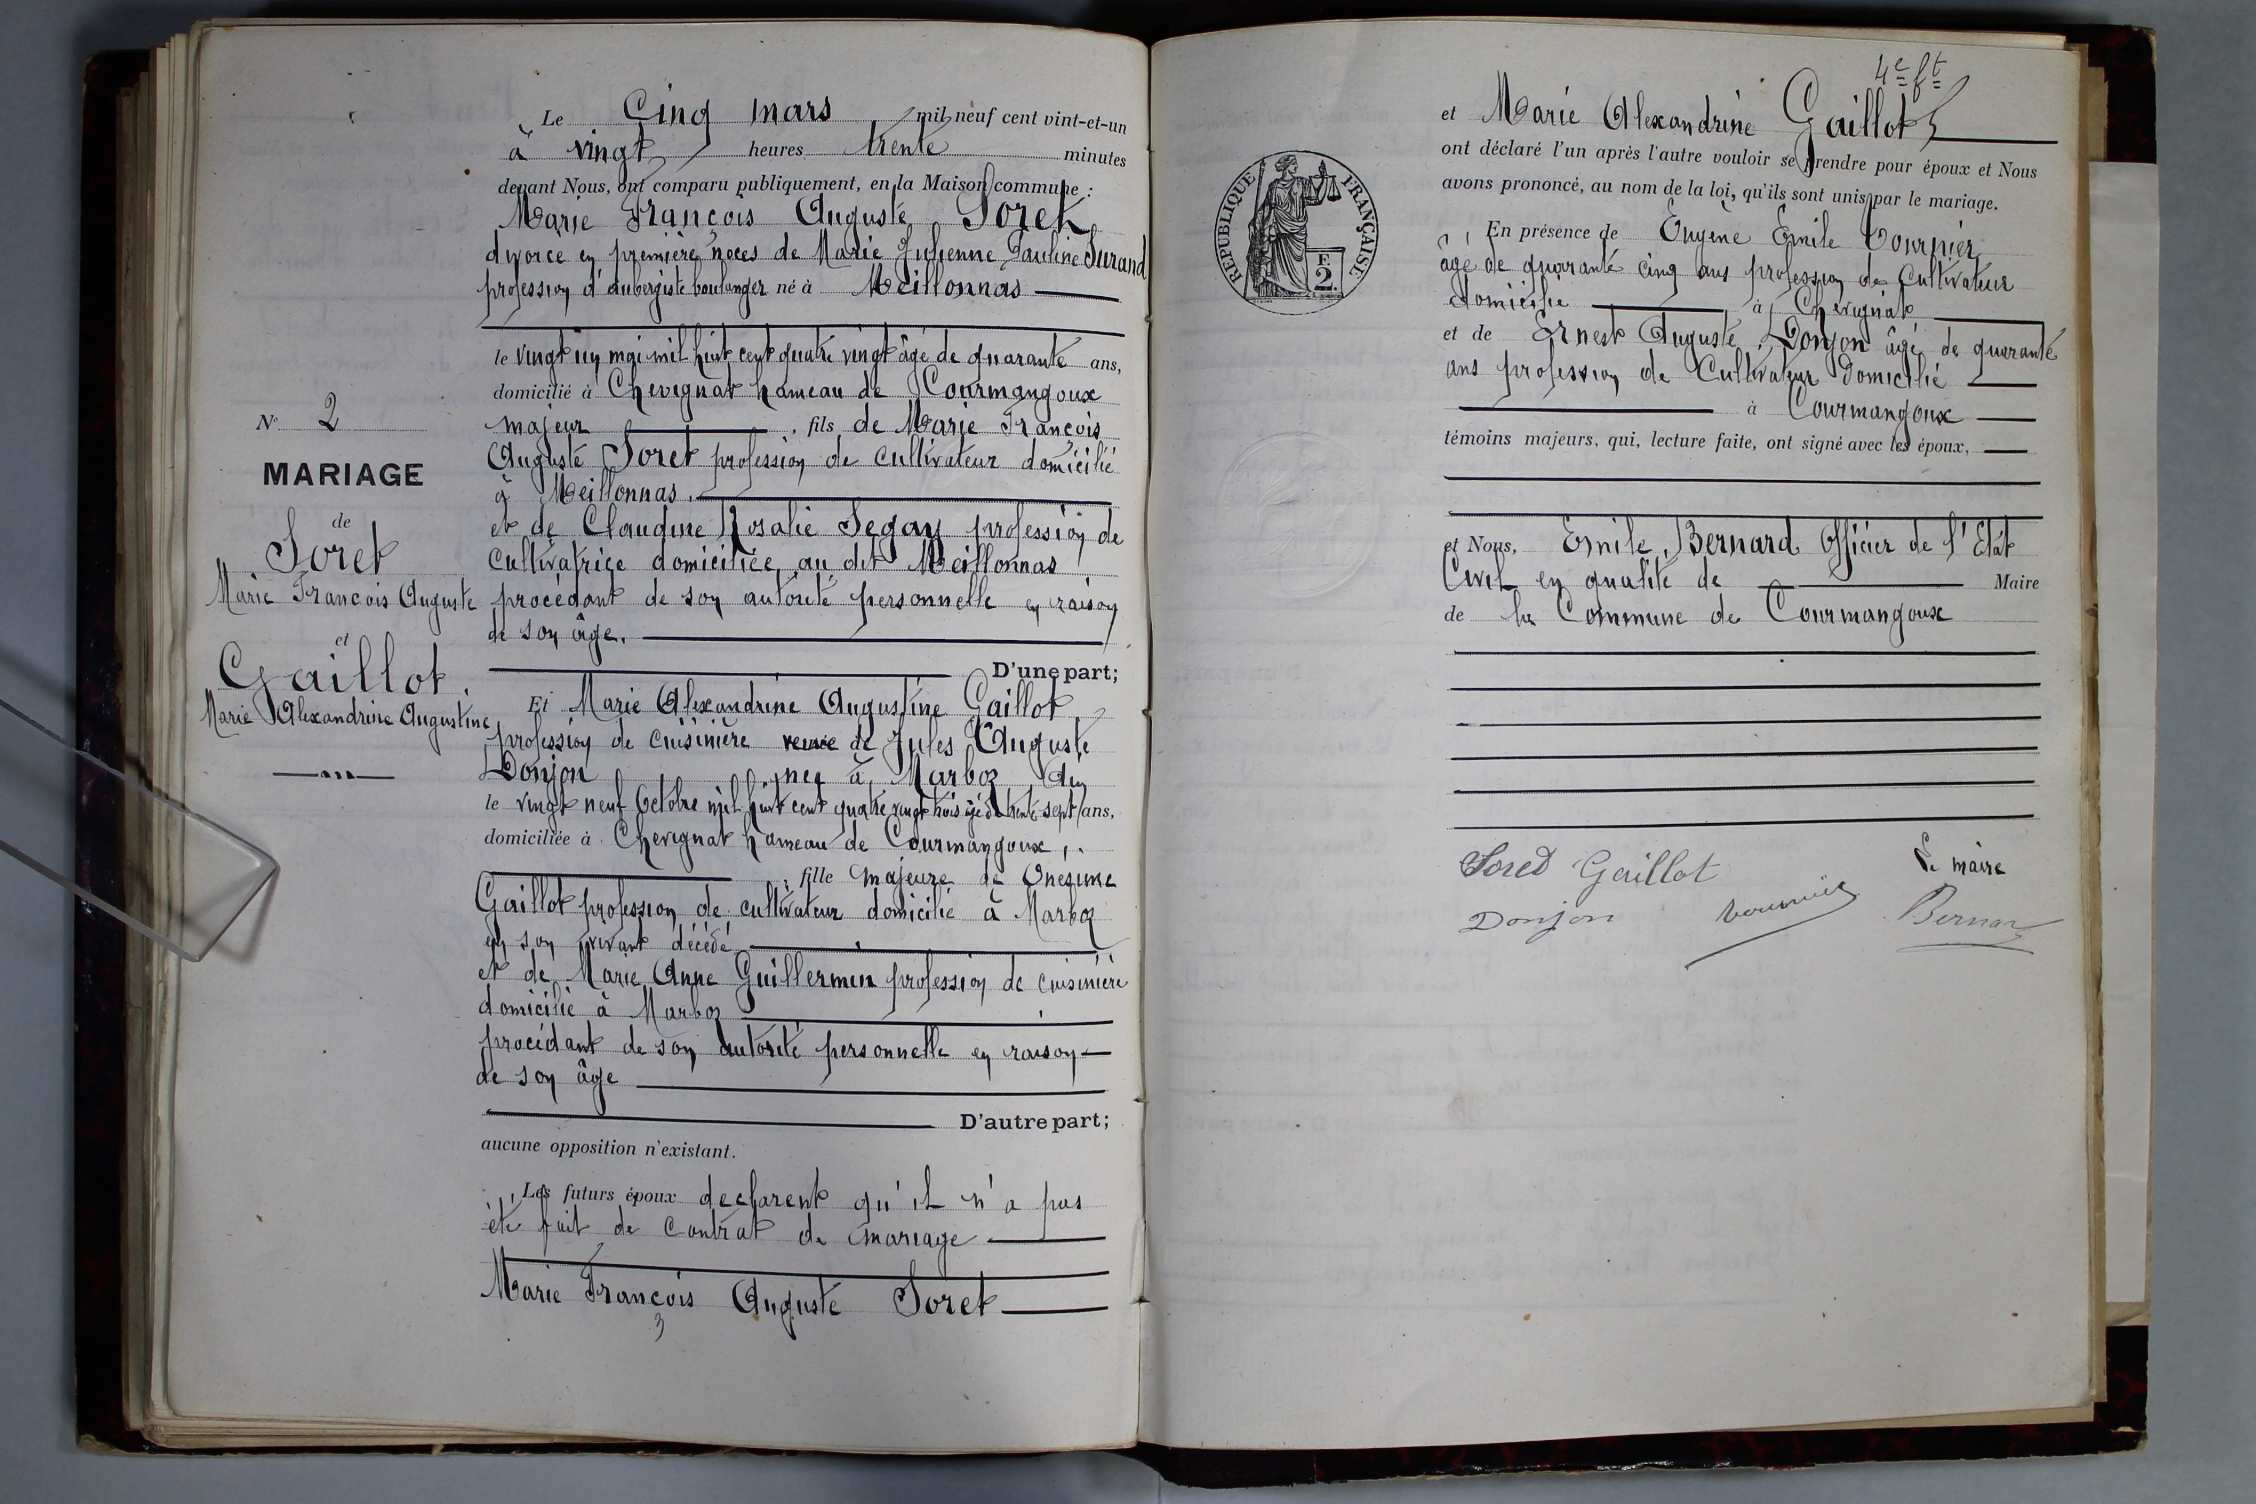 N° 2
MARIAGE
de
Soret
Marie François Auguste
et
Gaillot
Marie Alexandrine Augustine
Le Cinq mars mil neuf cent vint-et-un
à vingt heures trente minutes
devant Nous, ont comparu publiquement, en la Maison commune :
Marie François Auguste Soret
divorcé en première noces de Marie Julienne Pauline Surand
profession d'aubergiste boulanger né à Meillonnas
le vingt un mai mil huit cent quatre vingt âgé de quarante ans,
domicilié à Chevignat hameau de Courmangoux
majeur , fils de Marie François
Auguste Soret profession de cultivateur domicilié
à Meillonnas.
et de Claudine Rosalie Segay profession de
cultivatrice domiciliée au dit Meillonnas
procédant de son autorité personnelle en raison
de son âge.
D'une part;
Et Marie Alexandrine Augustine Gaillot
profession de cuisinière veuve de Jules Auguste
Donjon , née à Marboz Ain
le vingt neuf Octobre mil huit cent quatre vingt trois âgé de trente sept ans,
domiciliée à Chevignat hameau de Courmangoux,
, fille majeure de Onesime
Gaillot profession de cultivateur domicilié à Marboz
en son vivant décédé
et de Marie Anne Guillermin profession de cuisinière
domicilié à Marboz
procédant de son autorité personnelle en raison
de son âge
D'autre part;
aucune opposition n'existant.
Les futurs époux declarent qu'il n'a pas
été fait de contrat de mariage
Marie François Auguste Soret
3
4e ft
et Marie Alexandrine Gaillot
ont déclaré l'un après l'autre vouloir se prendre pour époux et Nous
avons prononcé, au nom de la loi, qu'ils sont unis par le mariage.
RÉPUBLIQUE FRANÇAISE
E
2
En présence de Eugène Emile Cournier
âgé de quarante cinq ans profession de Cultivateur
domicilié à Chevignat
et de Ernest Auguste Donjon âgé de quarante
ans profession de Cultivateur domicilié
à Courmangoux
témoins majeurs, qui, lecture faite, ont signé avec les époux,
et Nous, Emile Bernard Officier de l'Etat
Civil en qualité de Maire
de la Commune de Courmangoux
Soret Gaillot
Le maire
Donjon
Bernard